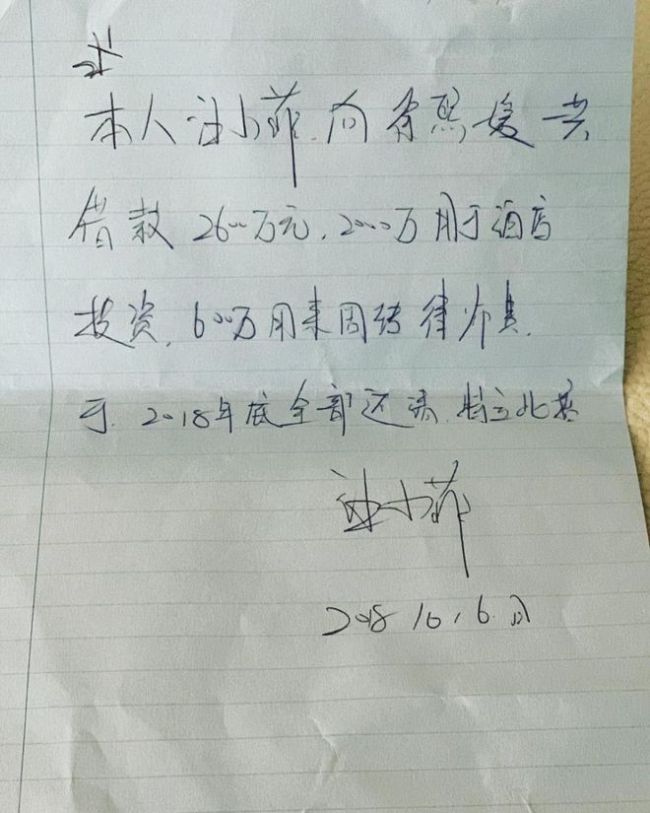 本人汪小菲,向徐熙媛共
借款2600万元,2000万用于酒店
投资,600万用来周转律师费,
于,2018年底全部还清,特立此据
汪小菲
2018 10,6.